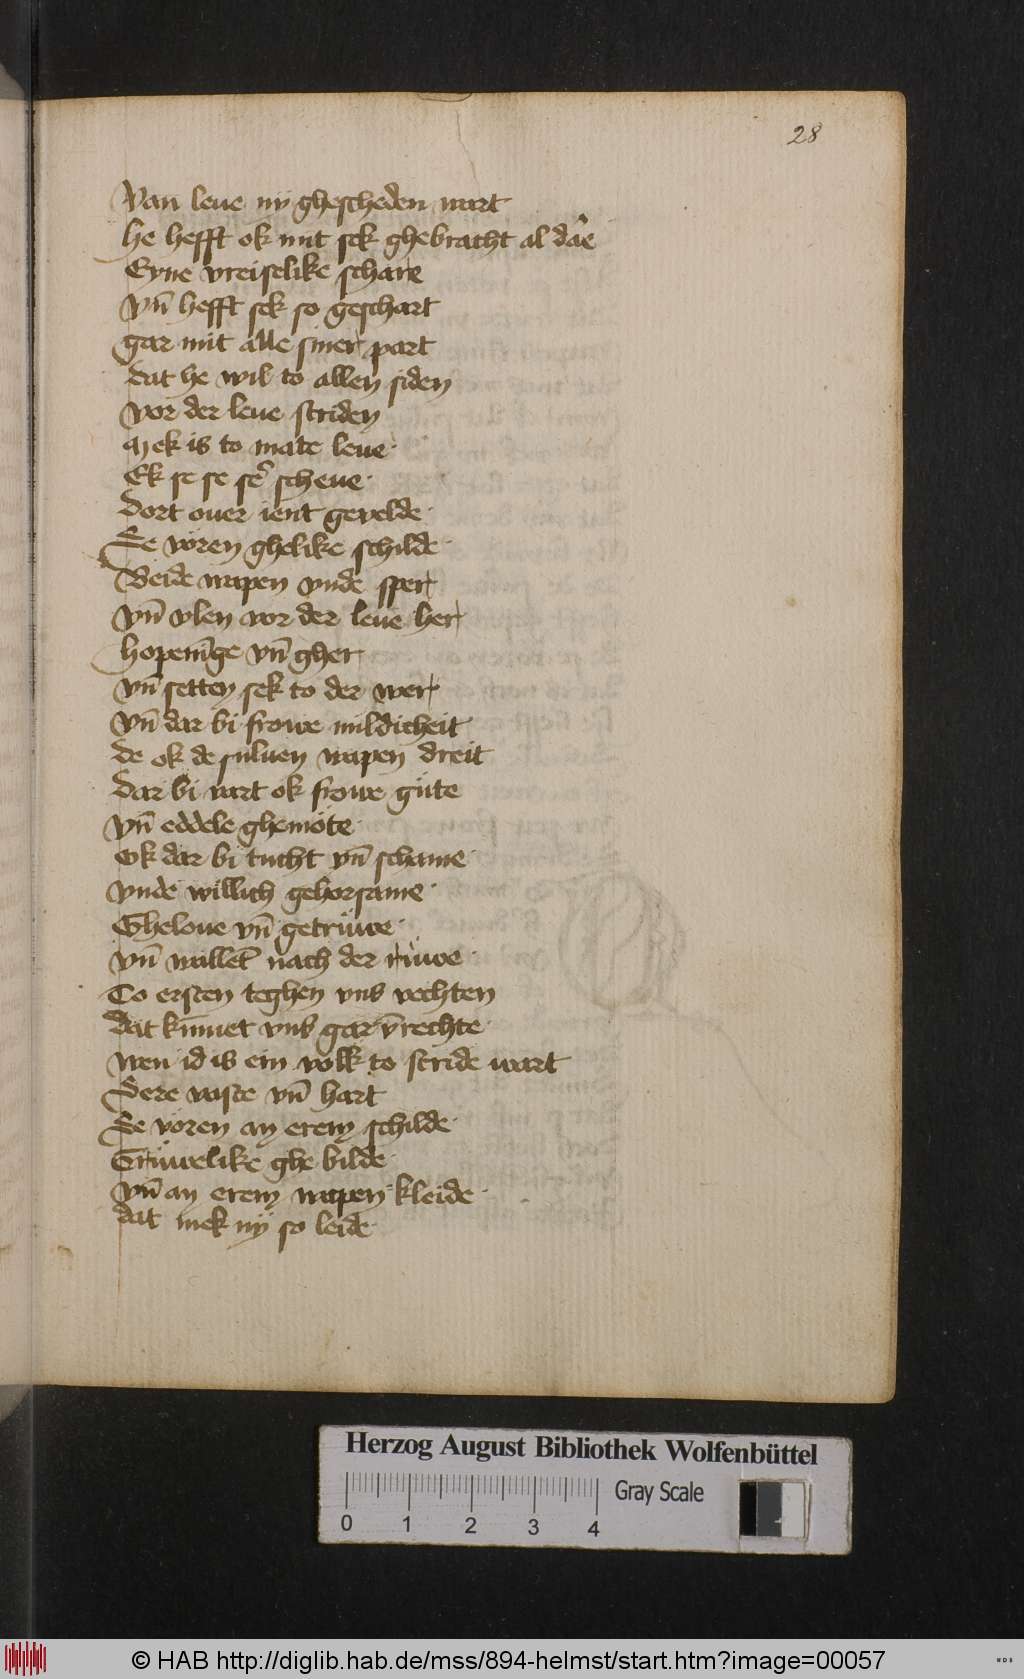 28
Van leue nÿ ghescheden wart
He hefft ok mit sek ghebracht al dar̂e
Eyne vreiselike schare
vn̄ hefft sek so geschart
gar mit alle siner part
dat he wil to allen siden
vor der leue striden
Mek is to mate leue
Ek se se ser̂ scheue
dort ouer ient gevelde
Se vören ghelike schilde
Beide wapen vnde sper
vn̄ ylen vor der leue her
hopen̄ge vn̄ gher
vn̄ setten sek to der wer
vn̄ dar bi frowe mildicheit
de ok de suluen wapen dreit
dar bi vart ok frowe güte
vn̄ eddele ghemöte
Ok dar bi tucht vn̄ schame
vnde willich gehorsame
Ghelove vn̄ getrüwe
vn̄ wallet̄ nach der rüwe
To ersten teghen vns vechten
dat kummet vns gar v̄rechte
wen id is ein volk to stride wart
Sere vaste vn̄ hart
Se vören an erem schilde
Grüwelike ghe bilde
vn̄ an erem wapen kleide
dat mek nÿ so leide
Herzog August Bibliothek Wolfenbüttel
Gray Scale
0 1 2 3 4
© HAB http://diglib.hab.de/mss/894-helmst/start.htm?image=00057